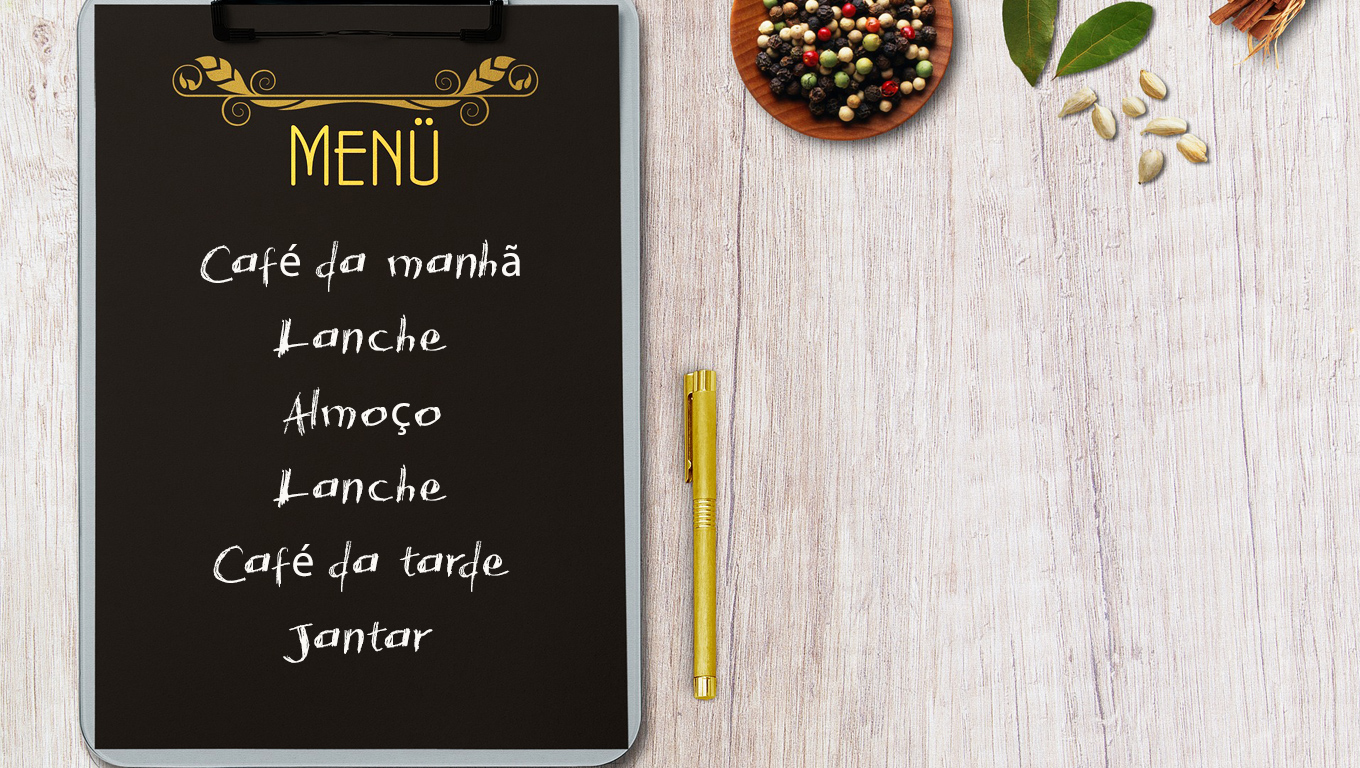 MENÜ
Café da manhã
Lanche
Almoço
Lanche
Café da tarde
Jantar